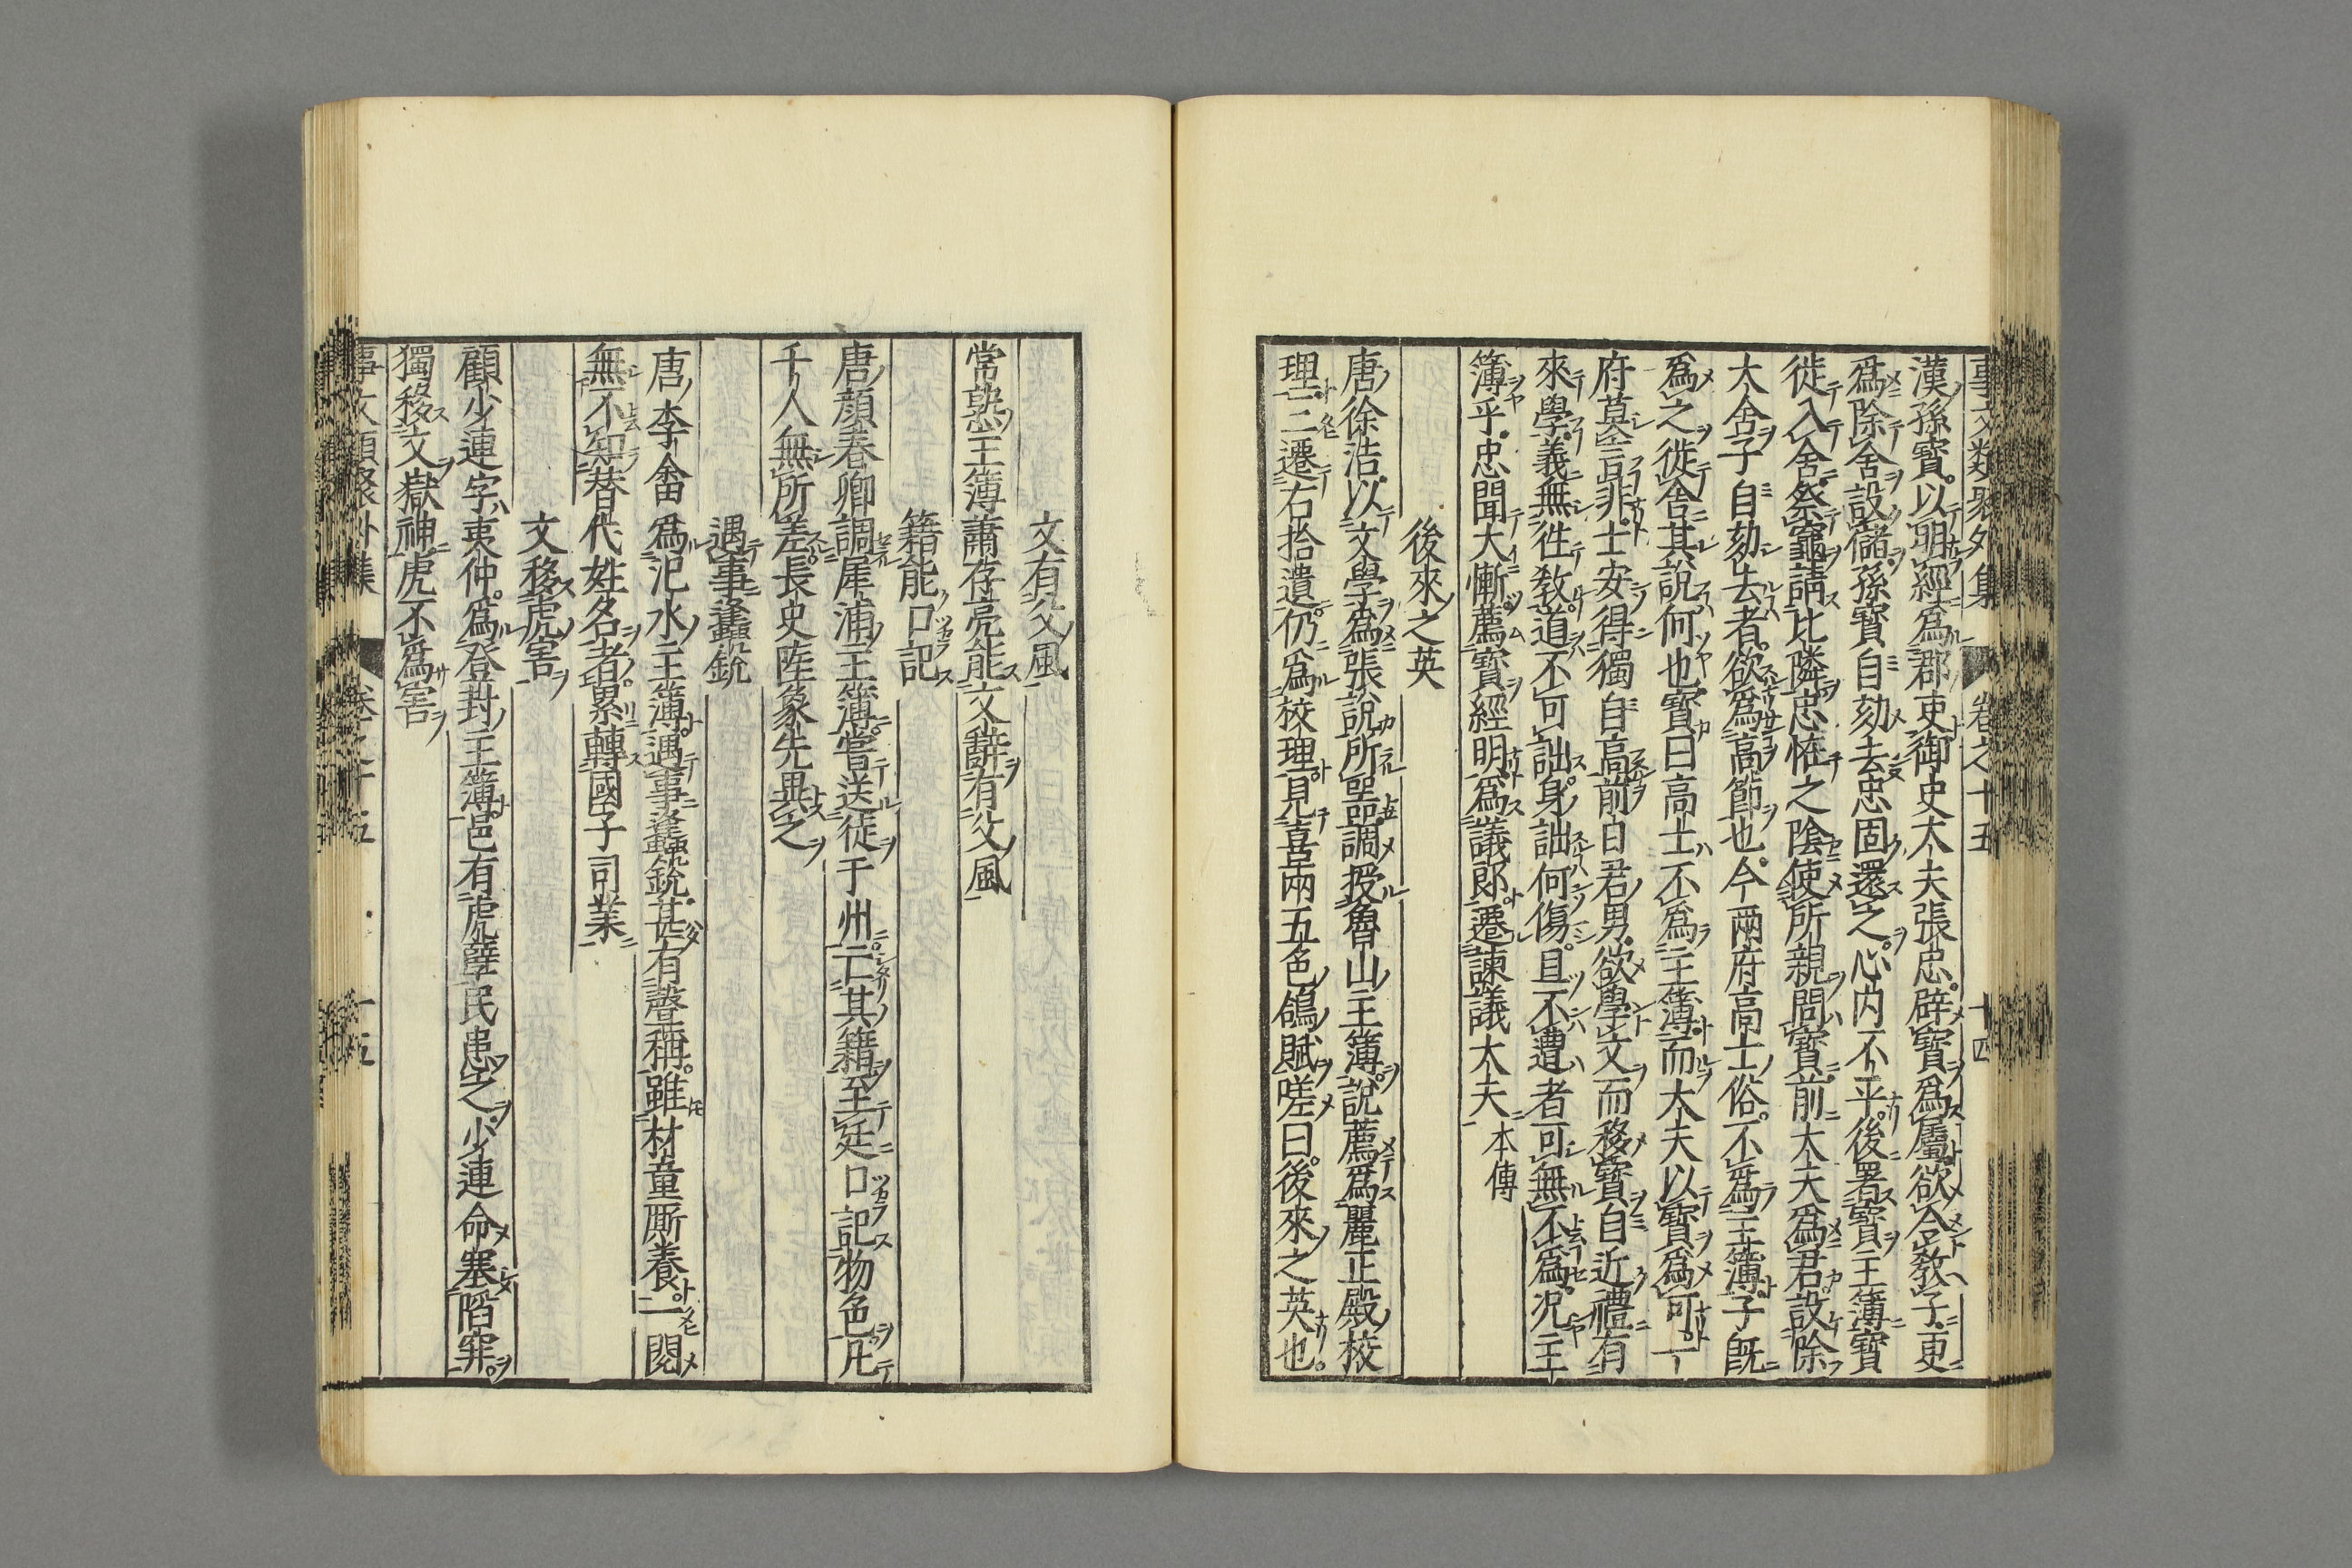 事文類聚外集 卷之十五 十四
漢孫寶以明經爲郡吏御史大夫張忠辟寶爲屬欲令敎子更
爲除舍設儲偫寶自劾去忠固還之心内不平後署寶主簿寶
徙入舍祭竈請比隣忠怪之陰使所親問寶前大夫爲君設除
大舍子自劾去者欲爲高節也今兩府高士俗不爲主簿子既
爲之徙舍甚說何也寶曰高士不爲主簿而大夫以寶爲可一
府莫言非士安得獨自高前日君男欲學文而移寶自近禮有
來學義無徃敎道不可詘身詘何傷且不遭者可無不爲况主
簿乎忠聞大慚薦寶經明爲議郎遷諫議大夫 本傳
後來之英
唐徐浩以文學爲張說所器調授魯山主簿說薦爲麗正殿校
理三遷右拾遺仍爲校理見喜雨五色鴿賦嗟曰後來之英也
文有父風
常熟主簿蕭存亮能文辭有父風
籍能口記
唐顔春卿調犀浦主簿嘗送徒于州亡其籍至廷口記物色凡
千人無所差長史陸象先異之
遇事蠭銳
唐李畬爲汜水主簿遇事蠭銳甚有聲稱雖村童厮養一閱
無不知替代姓名者累轉國子司業
文移虎害
顧少連字夷仲爲登封主簿邑有虎孽民患之少連命塞陷穽
獨移文嶽神虎不爲害